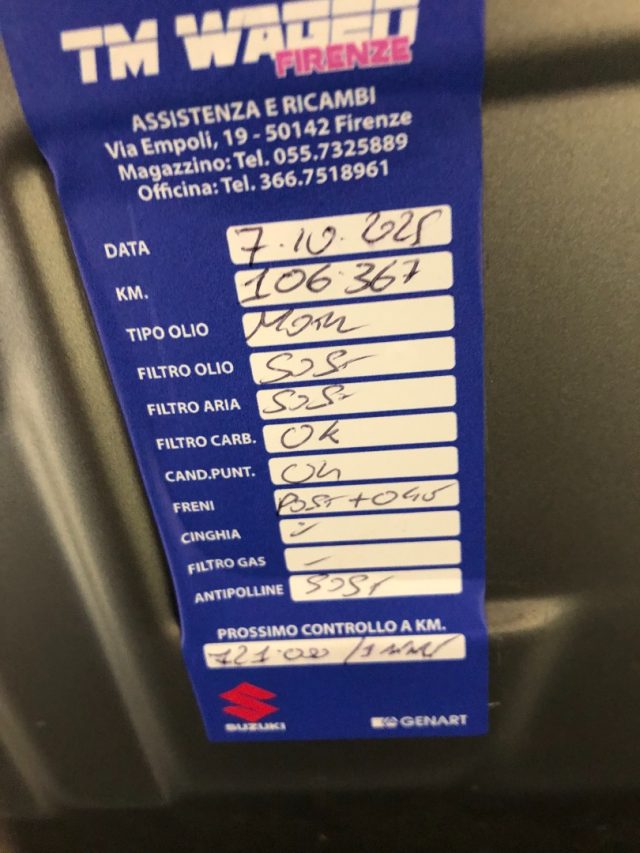 TM WAGEN
FIRENZE
ASSISTENZA E RICAMBI
Via Empoli, 19 - 50142 Firenze
Magazzino: Tel. 055.7325889
Officina: Tel. 366.7518961
DATA 7.10.2025
KM. 106.367
TIPO OLIO
FILTRO OLIO SOST
FILTRO ARIA SOST
FILTRO CARB. OK
CAND.PUNT. OK
FRENI POST + OLIO
CINGHIA
FILTRO GAS -
ANTIPOLLINE SOST
PROSSIMO CONTROLLO A KM.
121.00 / 1 ANNO
SUZUKI
GENART